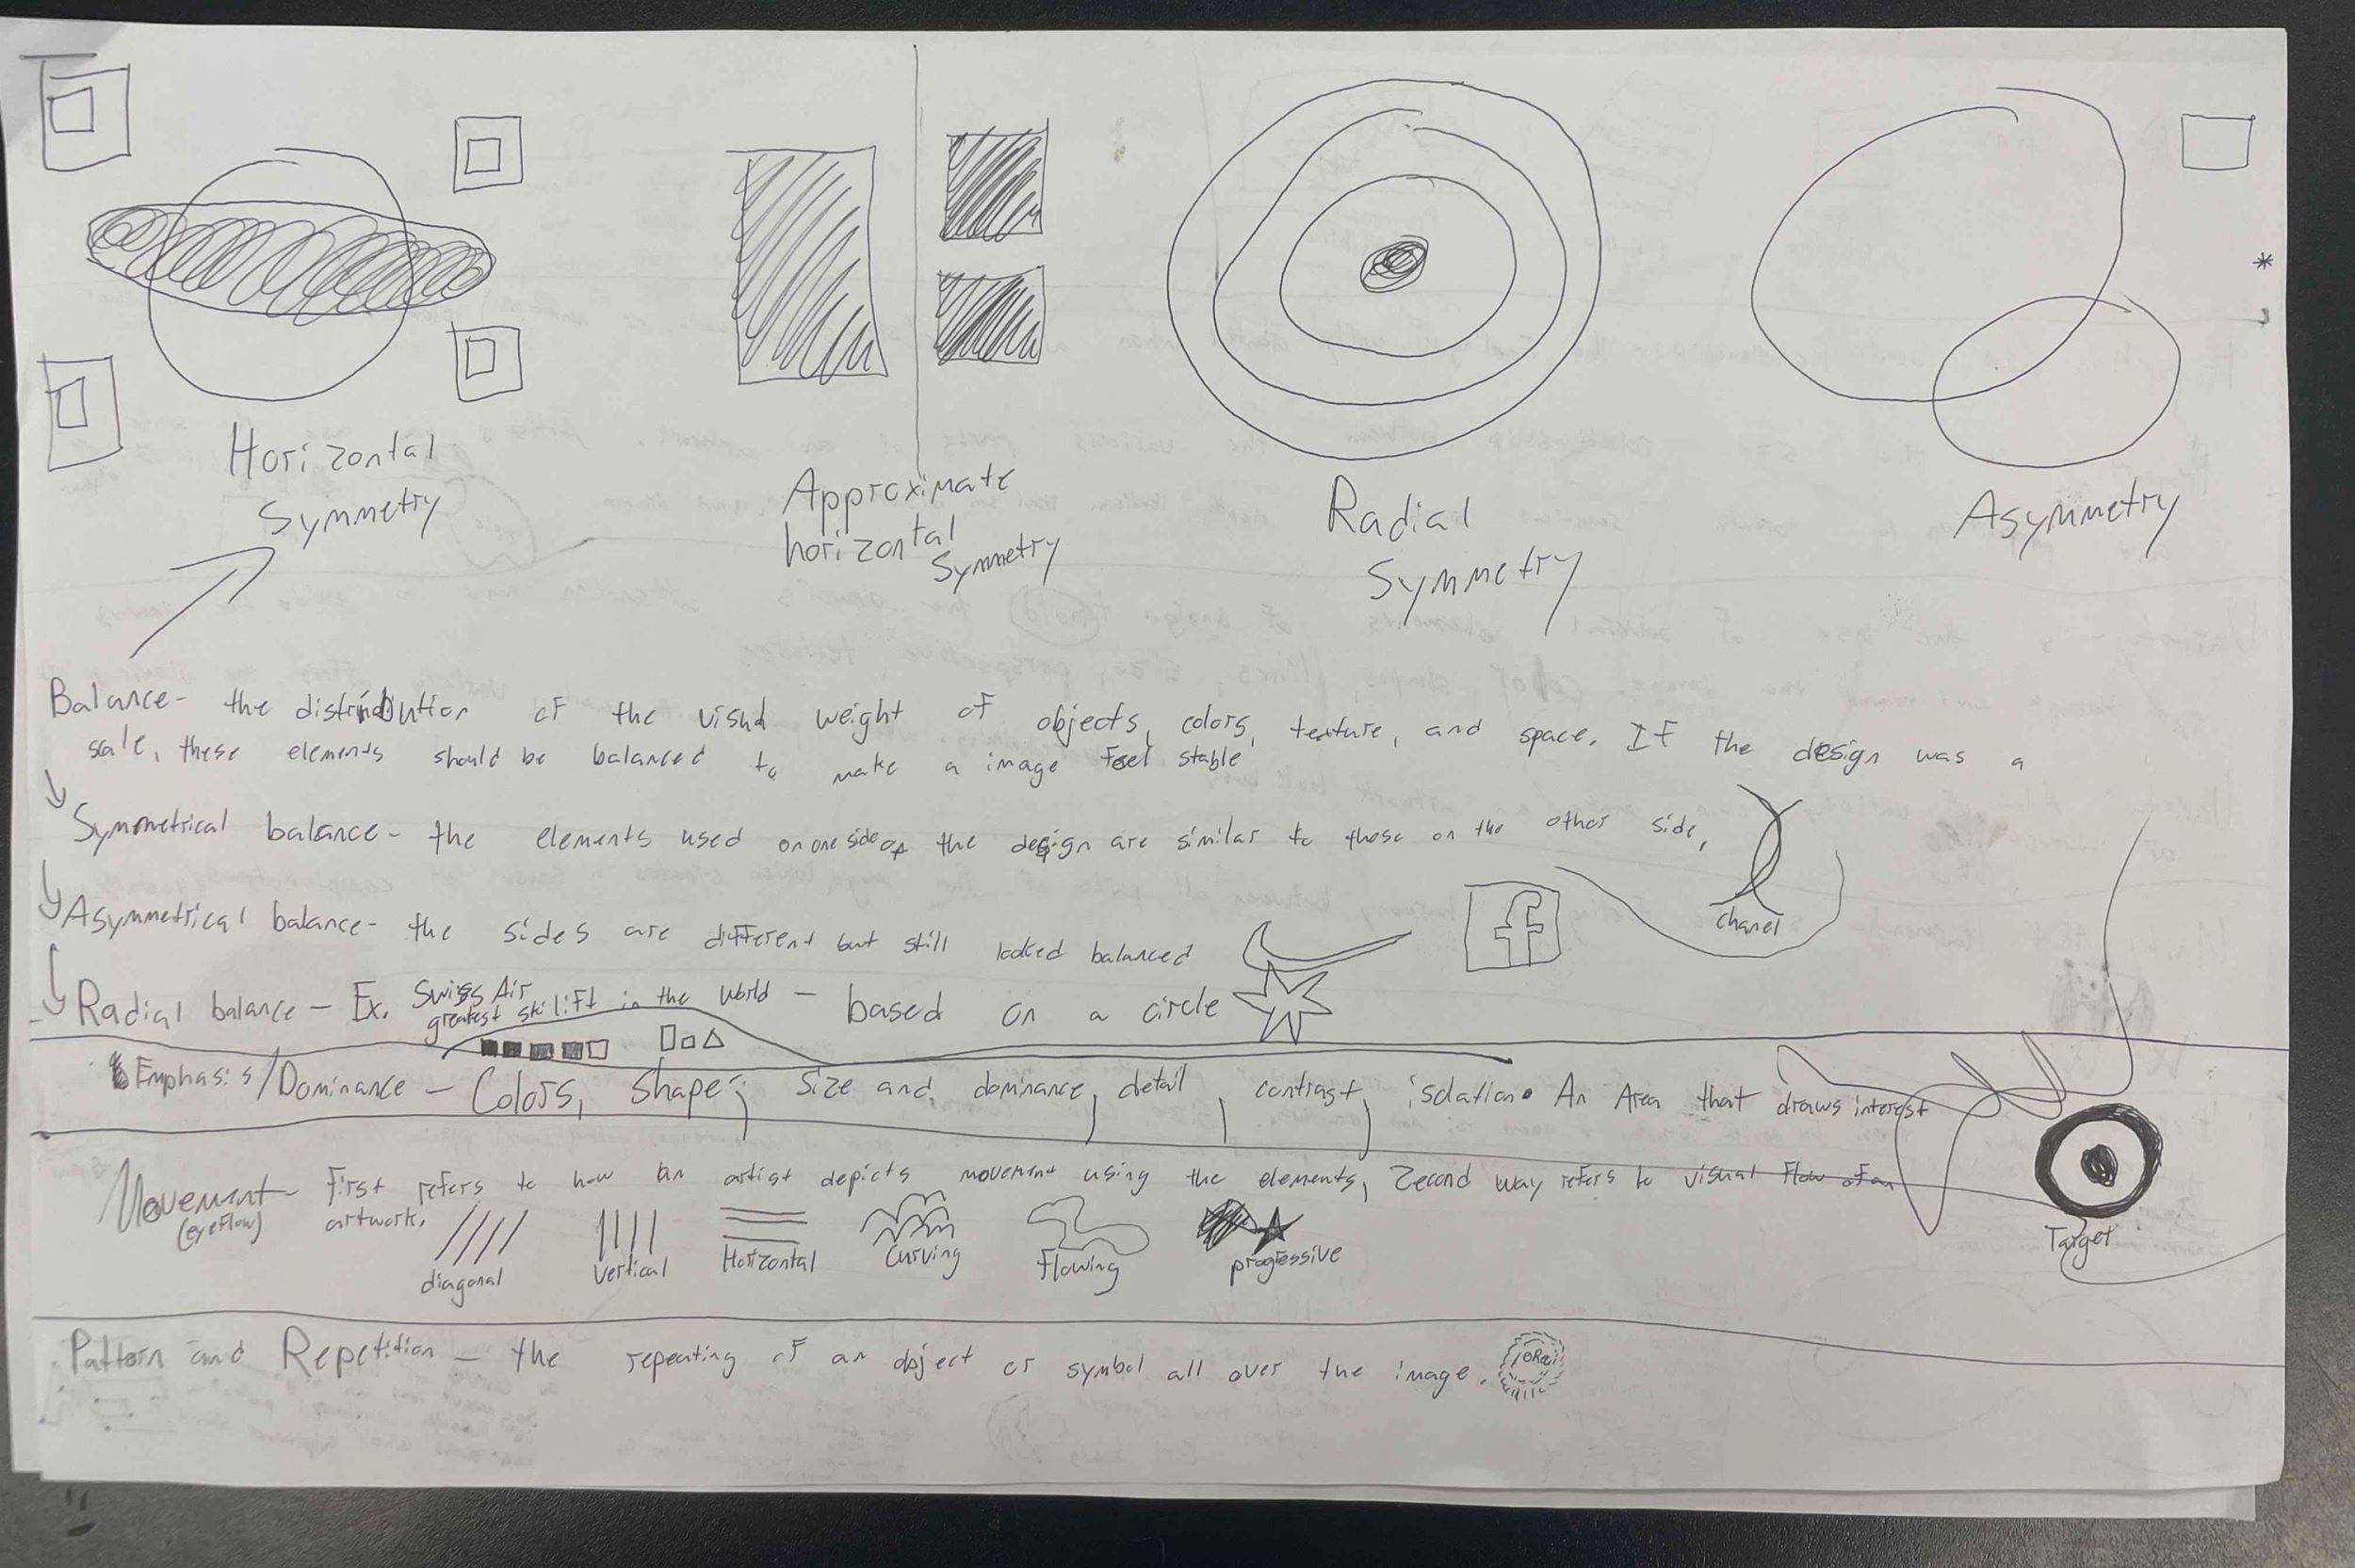 Horizontal
Symmetry
Approximate
horizontal
Symmetry
Radial
Symmetry
Asymmetry
Balance- the distribution of the visual weight of objects, colors, texture, and space. If the design was a
sale, these elements should be balanced to make a image feel stable
Symmetrical balance- the elements used on one side of the design are similar to those on the other side,
chanel
Asymmetrical balance- the sides are different but still looked balanced
f
Radial balance - Ex. Swiss Air
greatest ski lift in the world - based on a circle
Emphasis/Dominance - Colors, Shape, Size and dominance, detail, contrast, isolation. An Area that draws interest
Movement- First refers to how an artist depicts movement using the elements, Second way refers to visual flow of an
(eyeflow) artwork.
diagonal vertical Horizontal Curving Flowing progressive
Target
Pattern and Repetition - the repeating of an object or symbol all over the image.